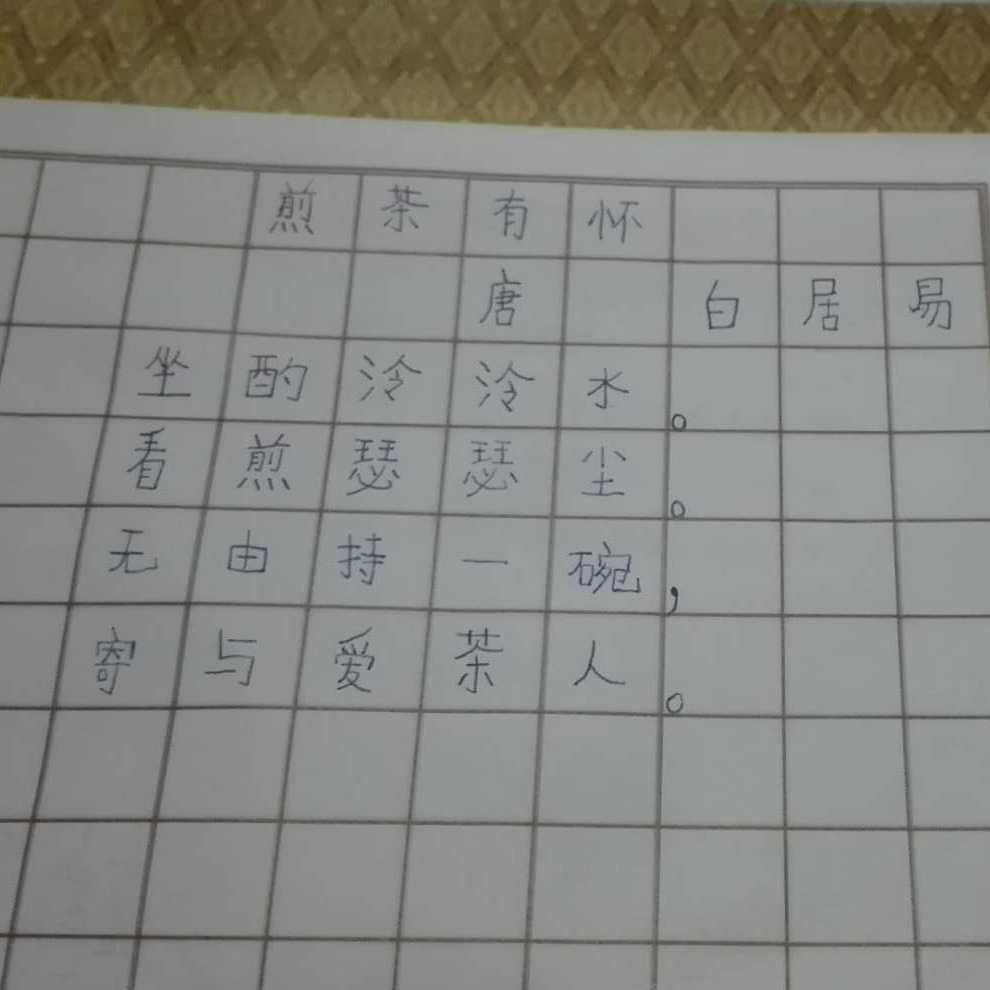 煎茶有怀
唐 白居易
坐酌泠泠水。
看煎瑟瑟尘。
无由持一碗,
寄与爱茶人。